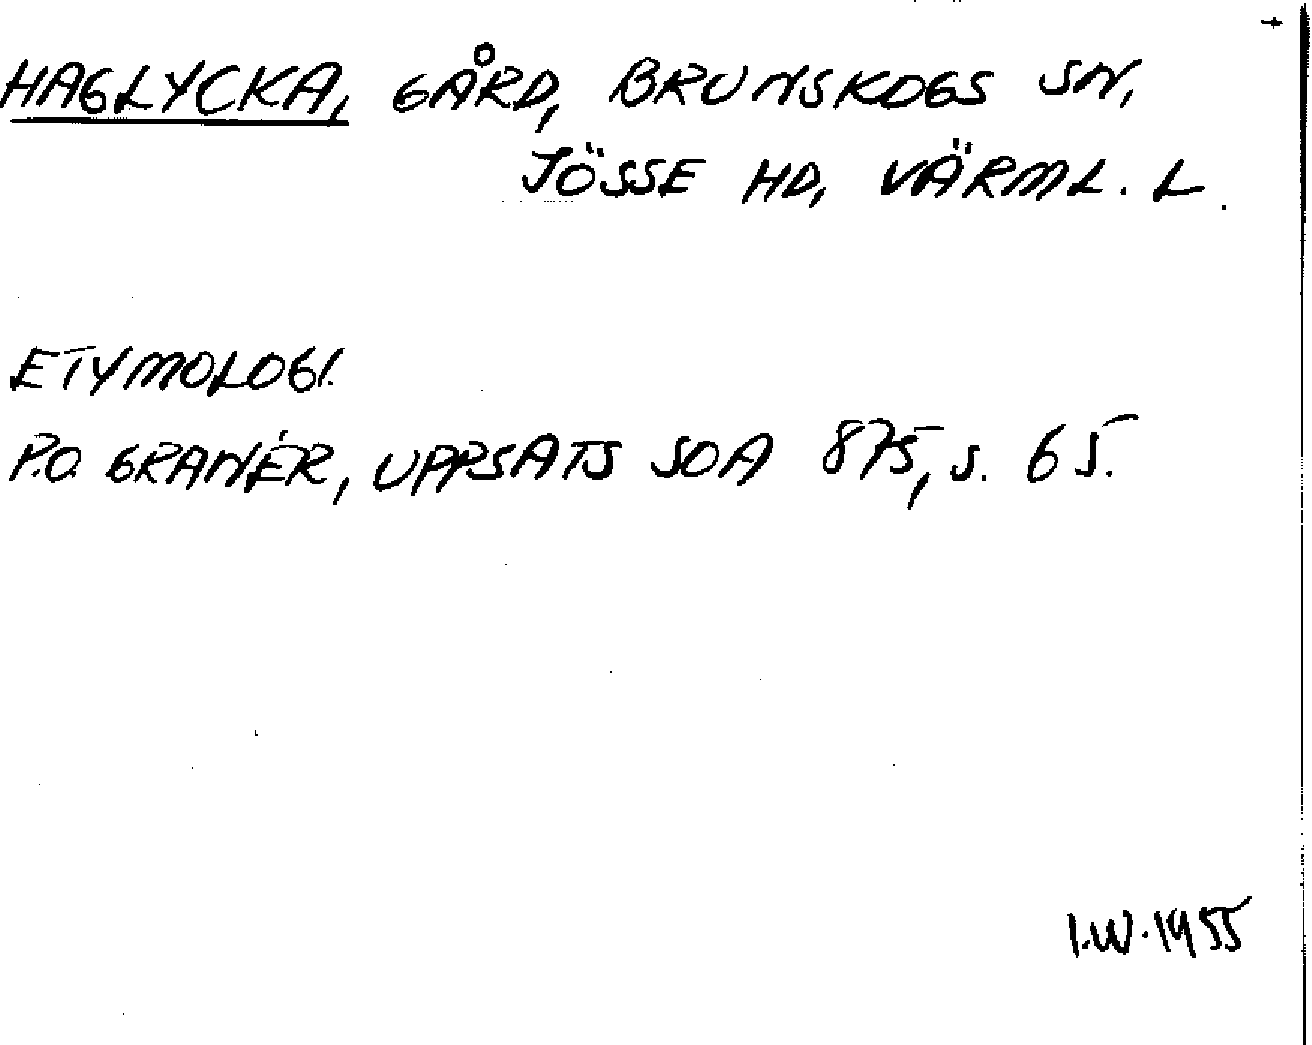 HAGLYCKA, GÅRD, BRUNSKOGS SN,
JÖSSE HD, VÄRML. L.
ETYMOLOGI.
P.O. GRANÉR, UPPSATS SOA 875, s. 65.
I.W. 1955